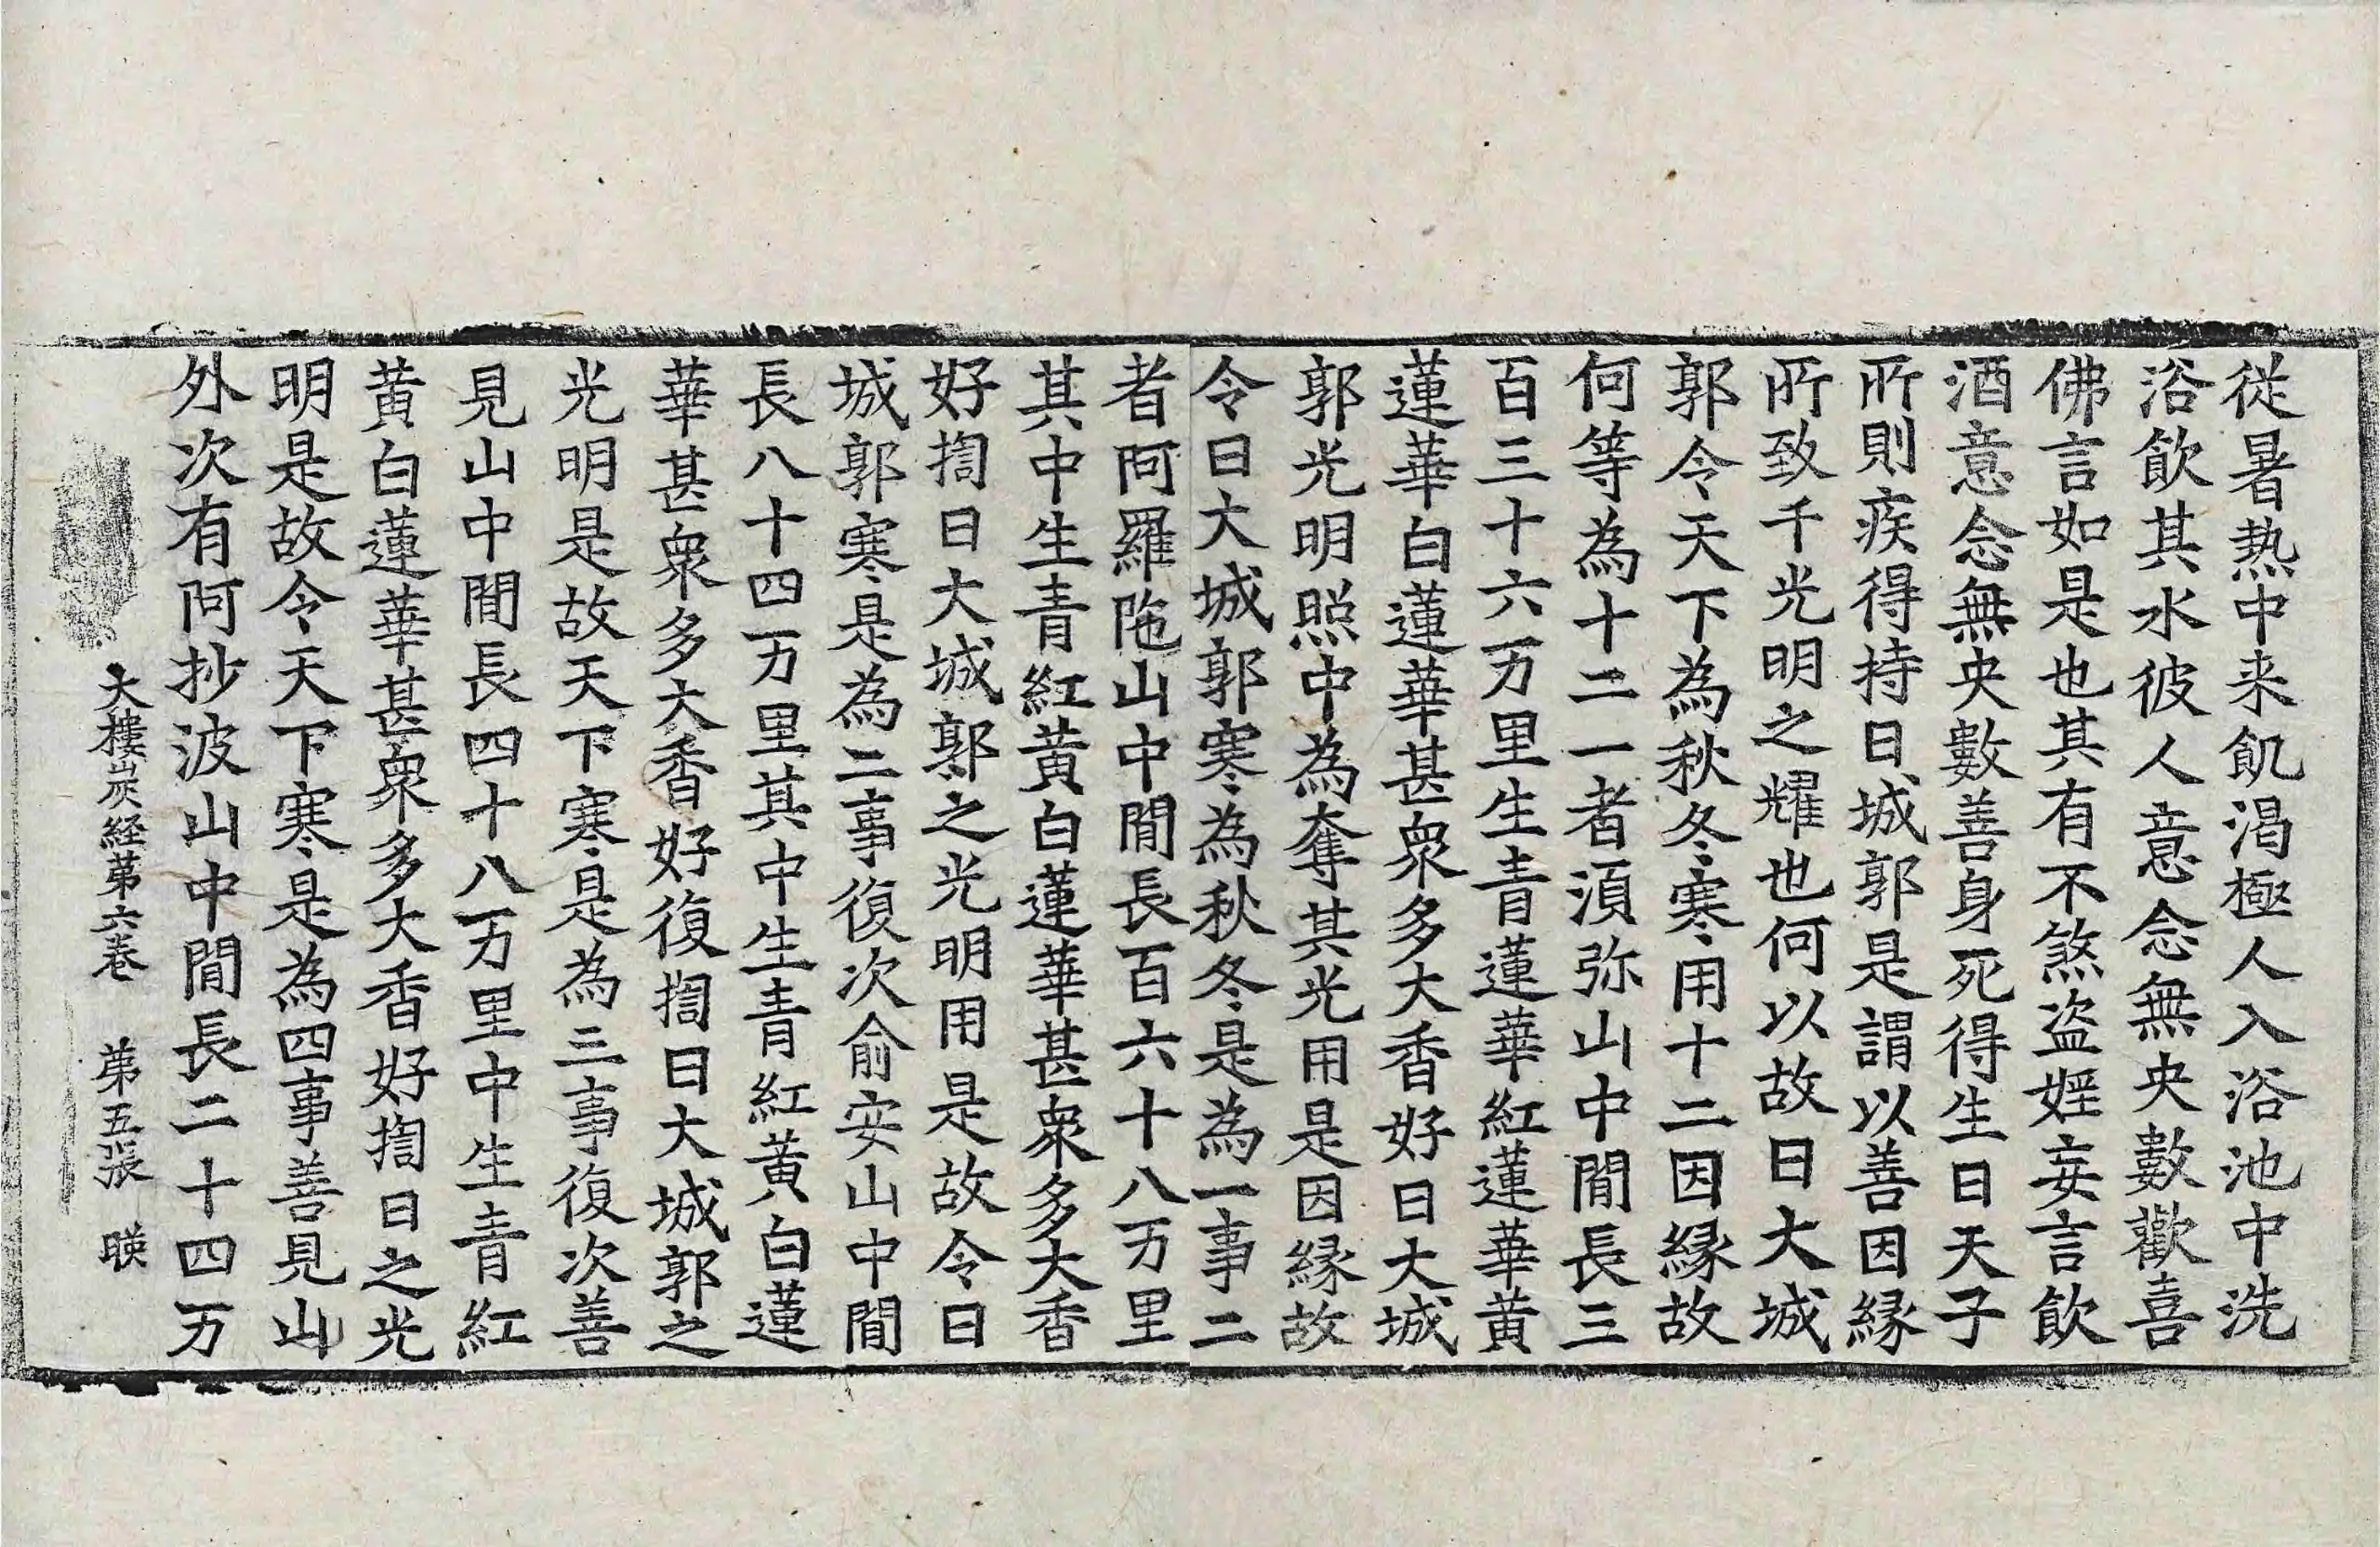 從暑热中来飢渴極人入浴池中洗
浴飲其水彼人意念無央數歡喜
佛言如是也其有不煞盗婬妄言飲
酒意念無央數善身死得生日天子
所則疾得持日城郭是謂以善因緣
所致千光明之耀也何以故日大城
郭令天下為秋冬寒用十二因緣故
何等為十二一者湏弥山中間長三
百三十六万里生青蓮華紅蓮華黄
蓮華白蓮華甚衆多大香好日大城
郭光明照中為奪其光用是因緣故
令日大城郭寒為秋冬是為一事二
者阿羅陁山中間長百六十八万里
其中生青紅黄白蓮華甚衆多大香
好揈日大城郭之光明用是故令日
城郭寒是為二事復次俞安山中間
長八十四万里其中生青紅黄白蓮
華甚衆多大香好復揈日大城郭之
光明是故天下寒是為三事復次善
見山中間長四十八万里中生青紅
黄白蓮華甚衆多大香好揈日之光
明是故令天下寒是為四事善見山
外次有阿抄波山中間長二十四万
大樓炭経苐六巻 苐五張 暎